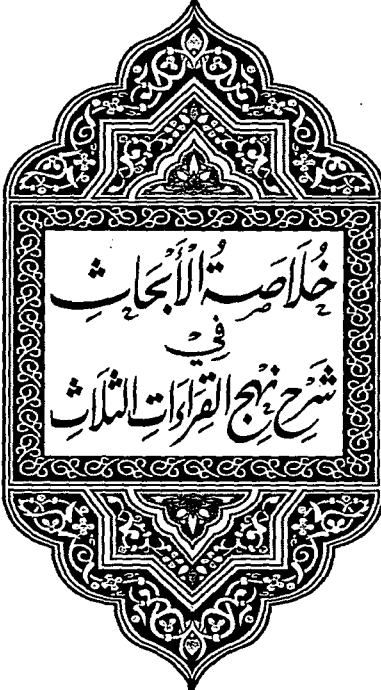 خُلَاصَةُ الْأَبْحَاثِ
فِي
شَرْحِ نَهْجِ القِرَاءَاتِ الثَّلَاثِ